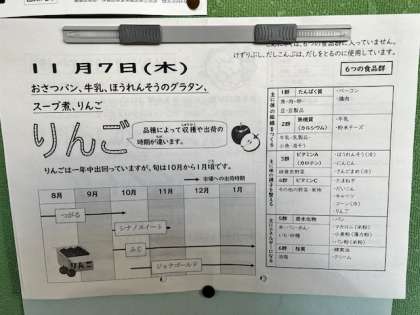 ６つの食品群に入っていません。
けずりぶし、だしこんぶは、だしをとるのに使用しています。
１１月７日（木）
おさつパン、牛乳、ほうれんそうのグラタン、
スープ煮、りんご
りんご
品種によって収穫や出荷の
時期が違います。
りんごは一年中出回っていますが、旬は10月から1月頃です。
市場への出荷時期
8月 9月 10月 11月 12月 1月
つがる
シナノスイート
ふじ
ジョナゴールド
りんご
６つの食品群
1群 たんぱく質
魚・肉・卵・
豆・豆製品
・ベーコン
・鶏肉
2群 無機質
（カルシウム）
牛乳・乳製品・
小魚・海そう
・牛乳
・粉末チーズ
3群 ビタミンA
（カロテン）
緑黄色野菜
・ほうれんそう（冷）
・にんじん
・さつまいも
4群 ビタミンC
その他の野菜・果物
・たまねぎ
・だいこん
・キャベツ
・コーン（冷）
・りんご
5群 炭水化物
米・パン・めん・
いも・砂糖
・パン
・マカロニ（米粉）
・小麦粉（薄力粉）
・パン粉（米粉）
6群 脂質
油脂
・綿実油
・クリーム